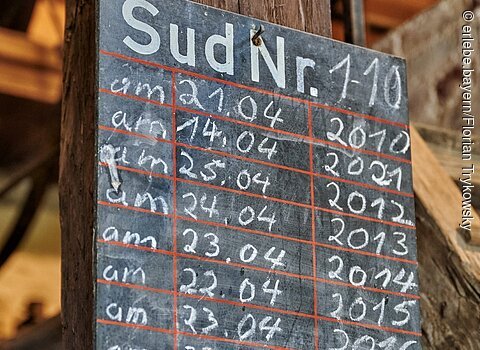 Sud Nr. 1-10
am 21.04 2010
am 14.04 2021
am 25.04 2012
am 24.04 2013
am 23.04 2014
am 22.04 2015
am 23.04
am
© erlebe.bayern/Florian Trykowsky